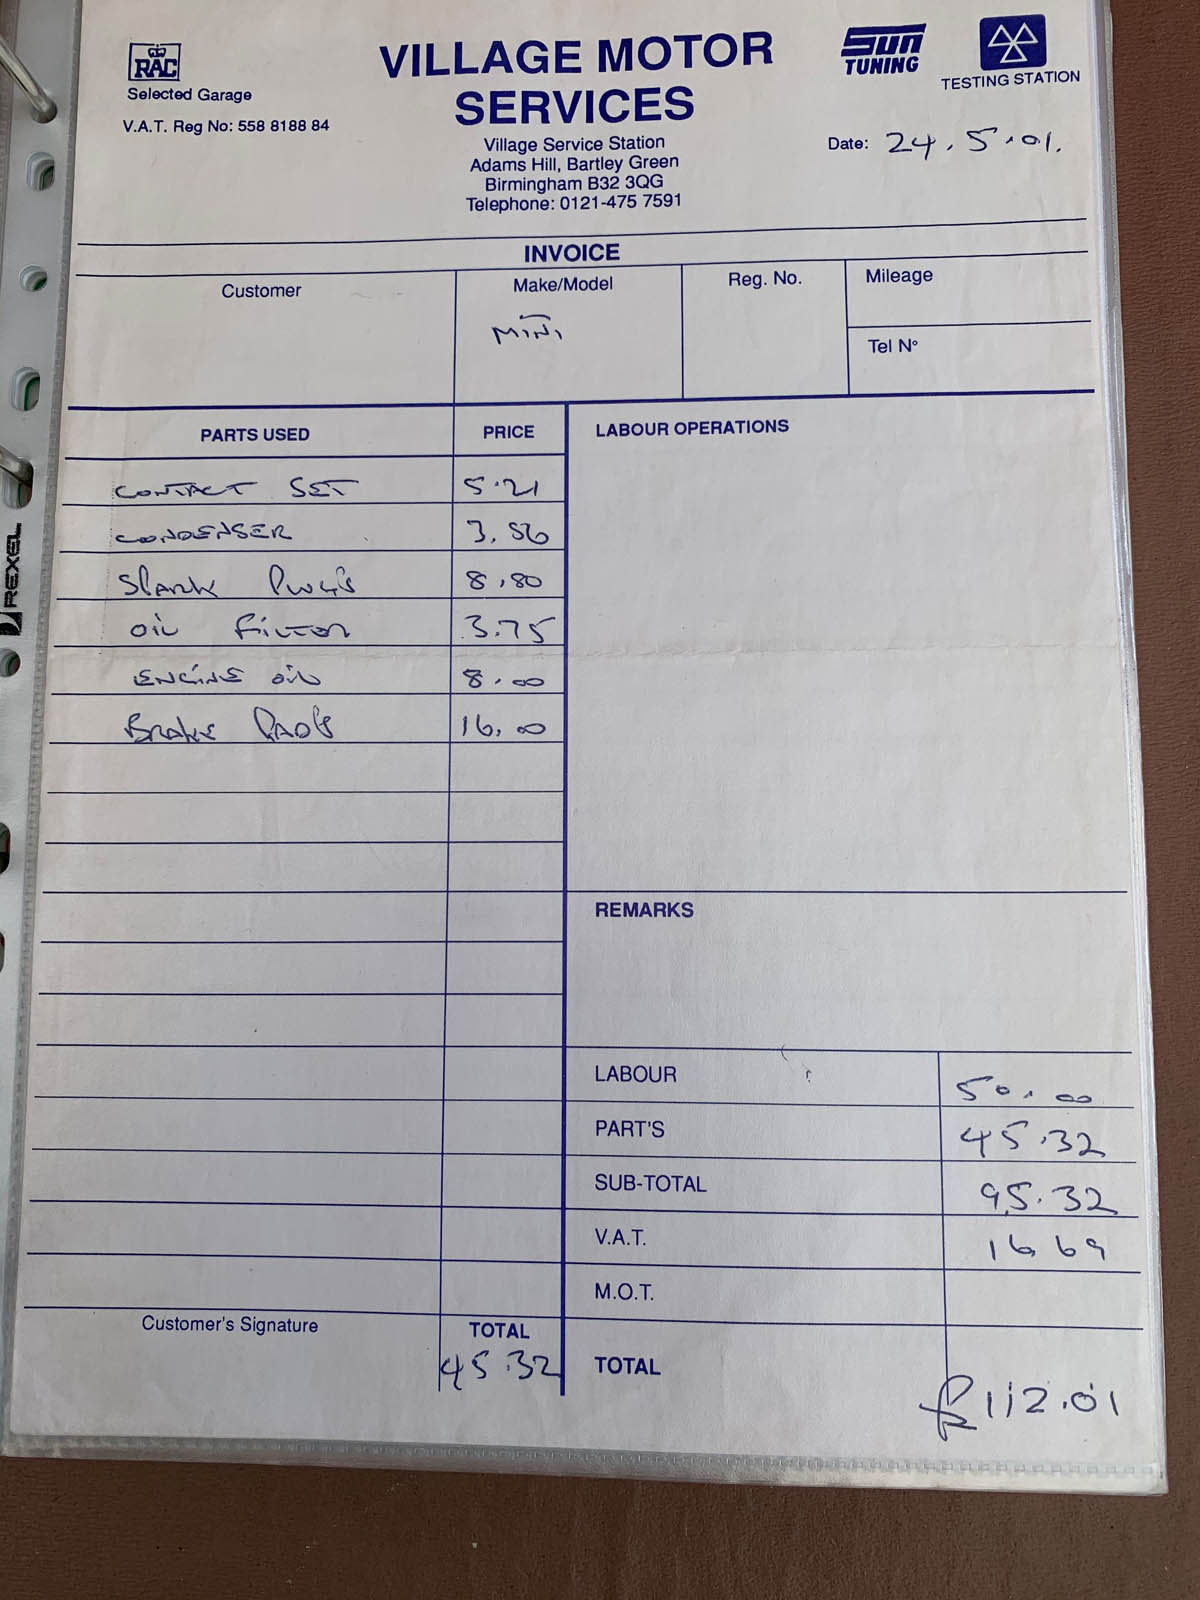 RAC
Selected Garage
V.A.T. Reg No: 558 8188 84
VILLAGE MOTOR
SERVICES
Village Service Station
Adams Hill, Bartley Green
Birmingham B32 3QG
Telephone: 0121-475 7591
Sun
TUNING
TESTING STATION
Date: 24.5.01.
INVOICE
Customer
Make/Model
MINI
Reg. No.
Mileage
Tel N°
PARTS USED PRICE
CONTACT SET 5.21
CONDENSER 3.56
SPARK PLUG'S 8.80
OIL FILTER 3.75
ENGINE OIL 8.00
BRAKE PAD'S 16.00
LABOUR OPERATIONS
REMARKS
LABOUR 50.00
PART'S 45.32
SUB-TOTAL 95.32
V.A.T. 16 69
M.O.T.
Customer's Signature
TOTAL
45.32
TOTAL £112.01
REXEL